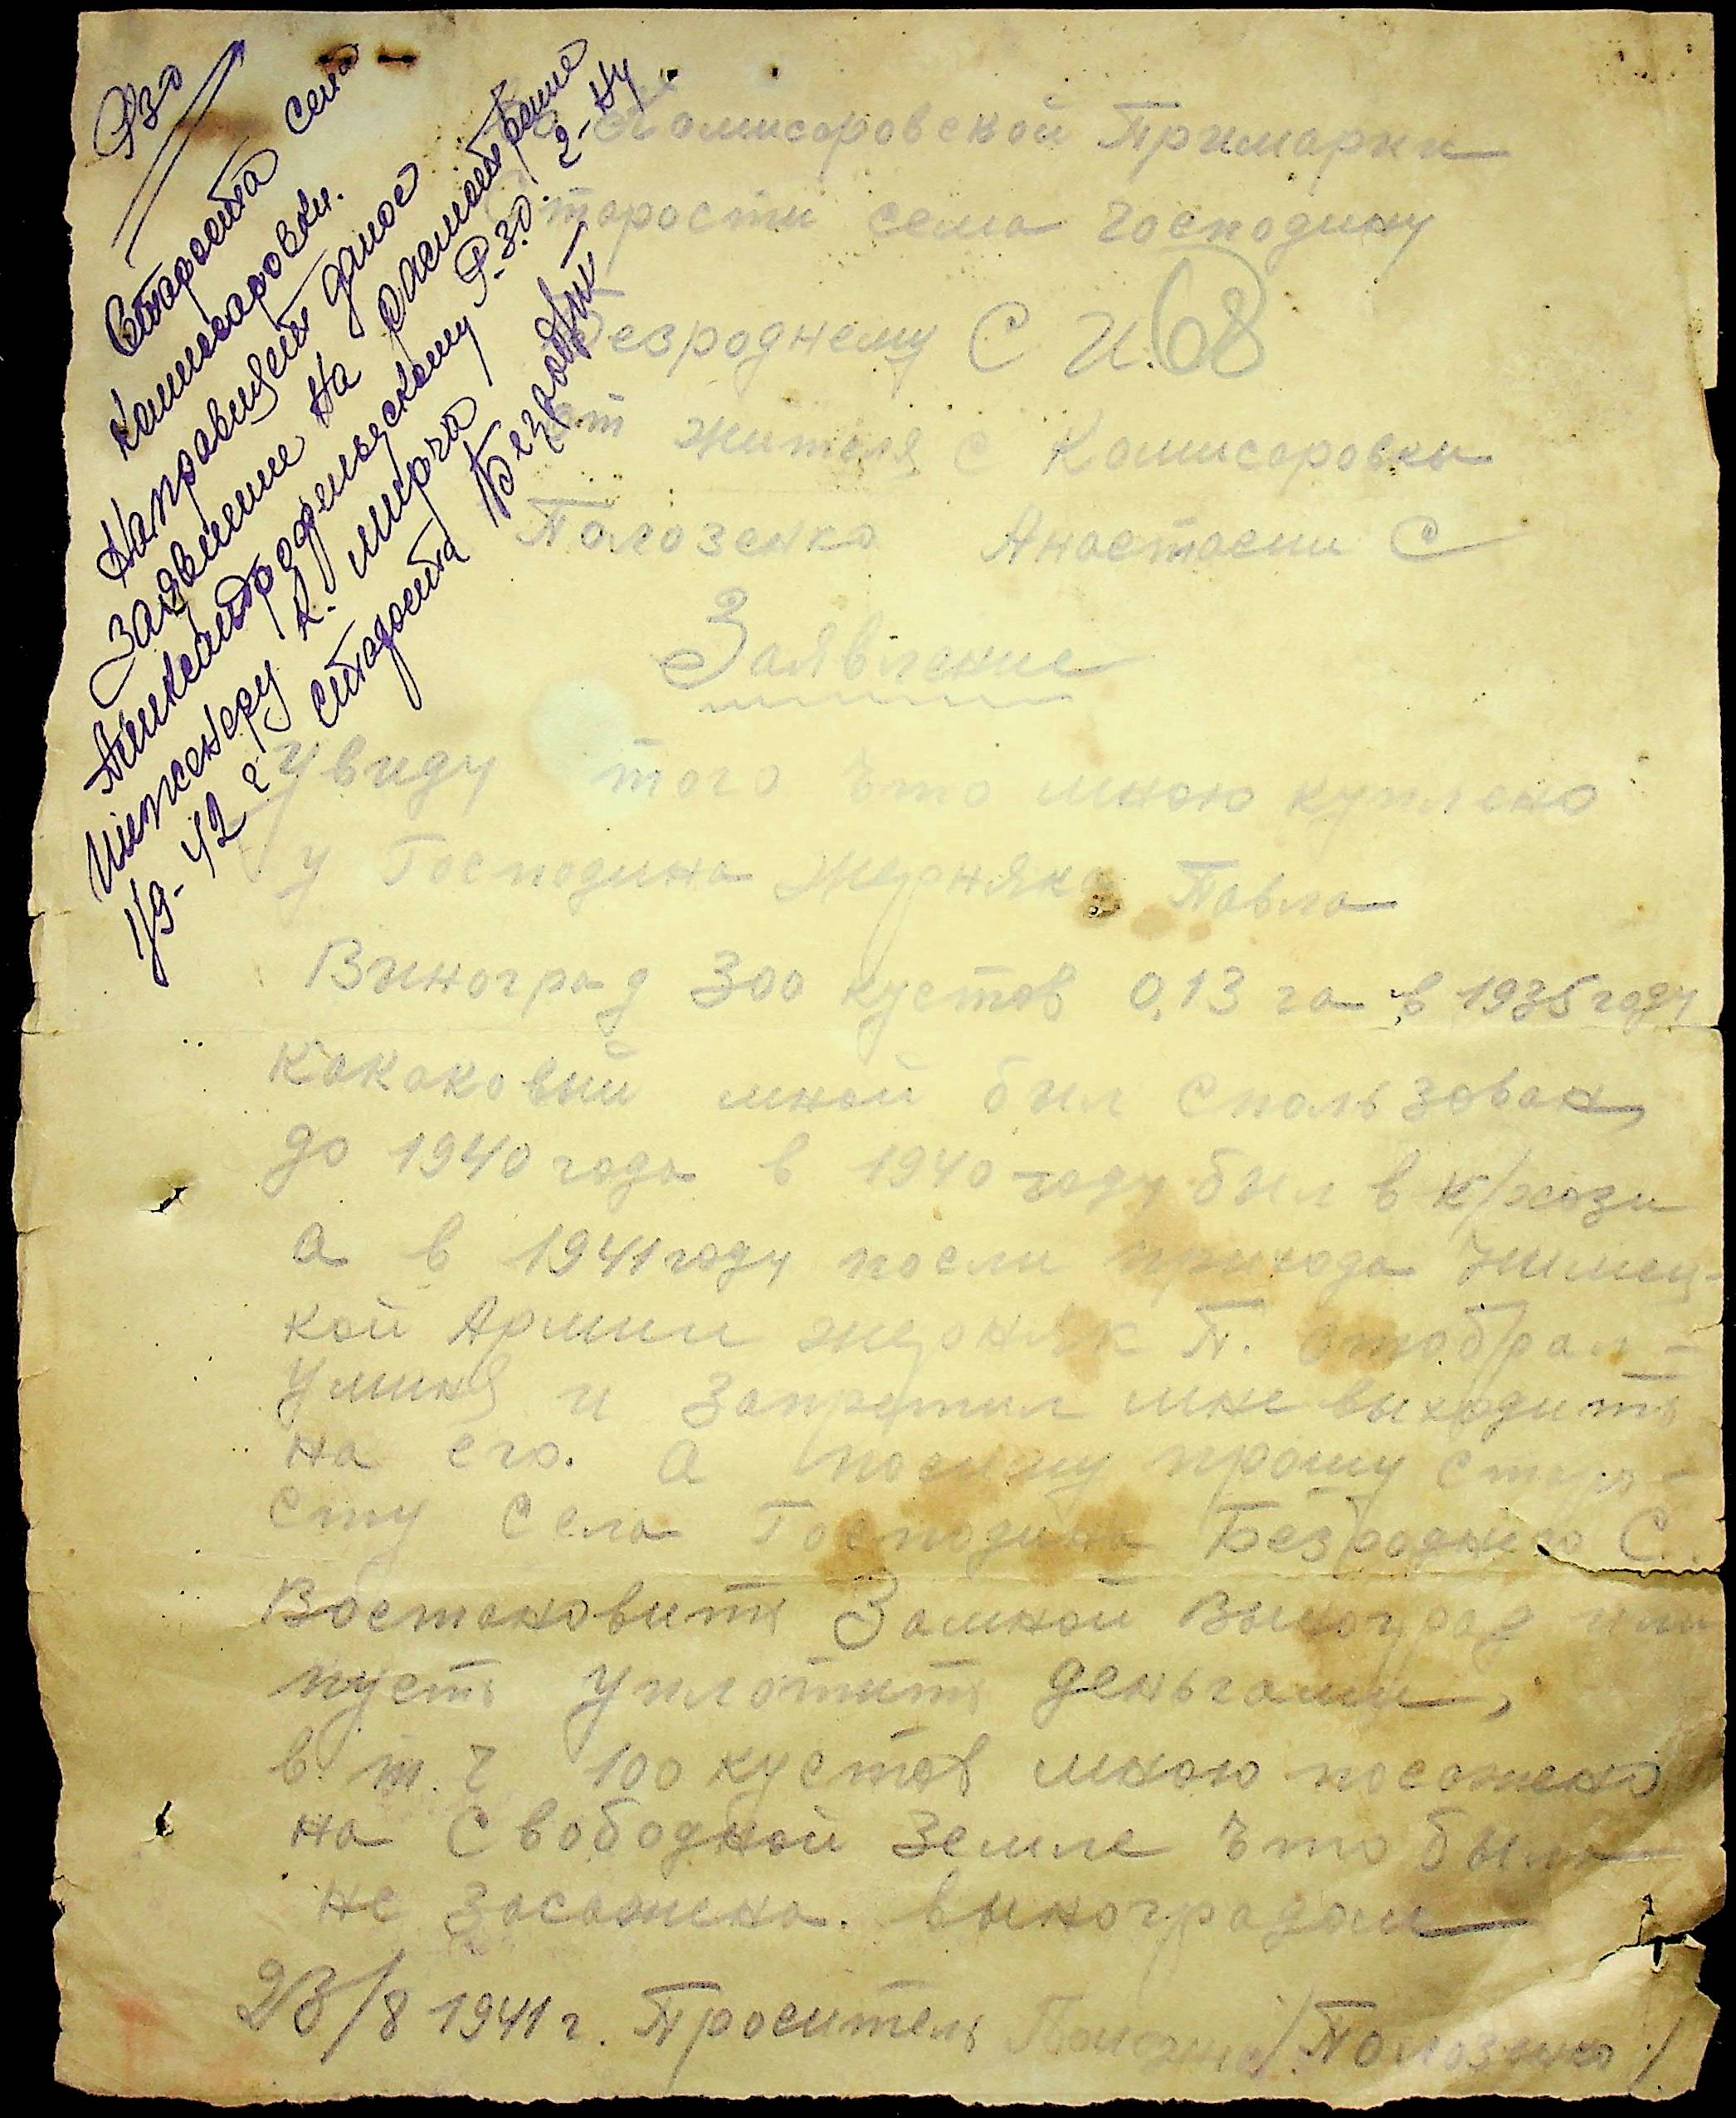 РЗО
Староста села
Комисаровки.
Направищет даное
заявление на расмотрение
Инженеру Р.З.О. г-ну
К. Мироча
1/9-42 г староста Безродний
Комисаровской Примарии
старости села Господину
Безроднему С И.
68
от жителя с Комисаровки
Полозенко Анастасии С
Заявление
Увиду того что мною куплено
у Господина Жерняка Павла
Виноград 300 кустов 0,13 га в 1935 году
какаковый мной был спользован,
до 1940 года в 1940 году был в к/хози
а в 1941 году посли прихода Нимец-
кой Армии жерняк П. отобрал
Уминя и запретил мне выходить
на его. а посему прошу старо-
сту села Господина Безроднего С.
Востановить Замной Виноград или
пусть уплотить деньгами,
в т. ч 100 кустов мною посажено
на Свободной Земле что было
не засажено. виноградом
23/8 1941 г. Проситель /Полозенко/